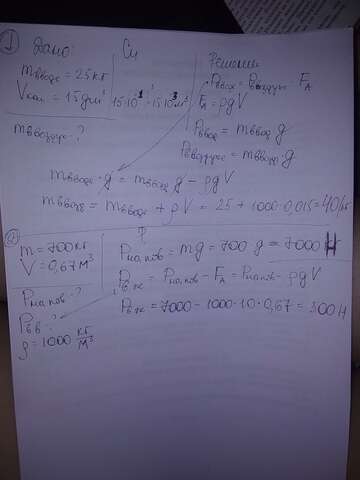 ① Дано:
m в воде = 25 кг
V кам. = 15 дм³
m в воздухе - ?
Си
15·10⁻³ м³
Решение
Pвозд = Pвоздухе FA
FA = ρgV
Pвводе = mвводе g
Pввоздухе = mввозд·g
mвводе·g = mввозд g - ρgV
mввозд = mвводе + ρV = 25 + 1000·0,015 = 40 кг
②
m = 700 кг
V = 0,67 м³
Pна пов - ?
Pв в ?
ρ = 1000 кг/м³
Pна пов = mg = 700 g = 7000 Н
Pв ж = Pна пов - FA = Pна пов - ρgV
Pв ж = 7000 - 1000·10·0,67 = 300 Н